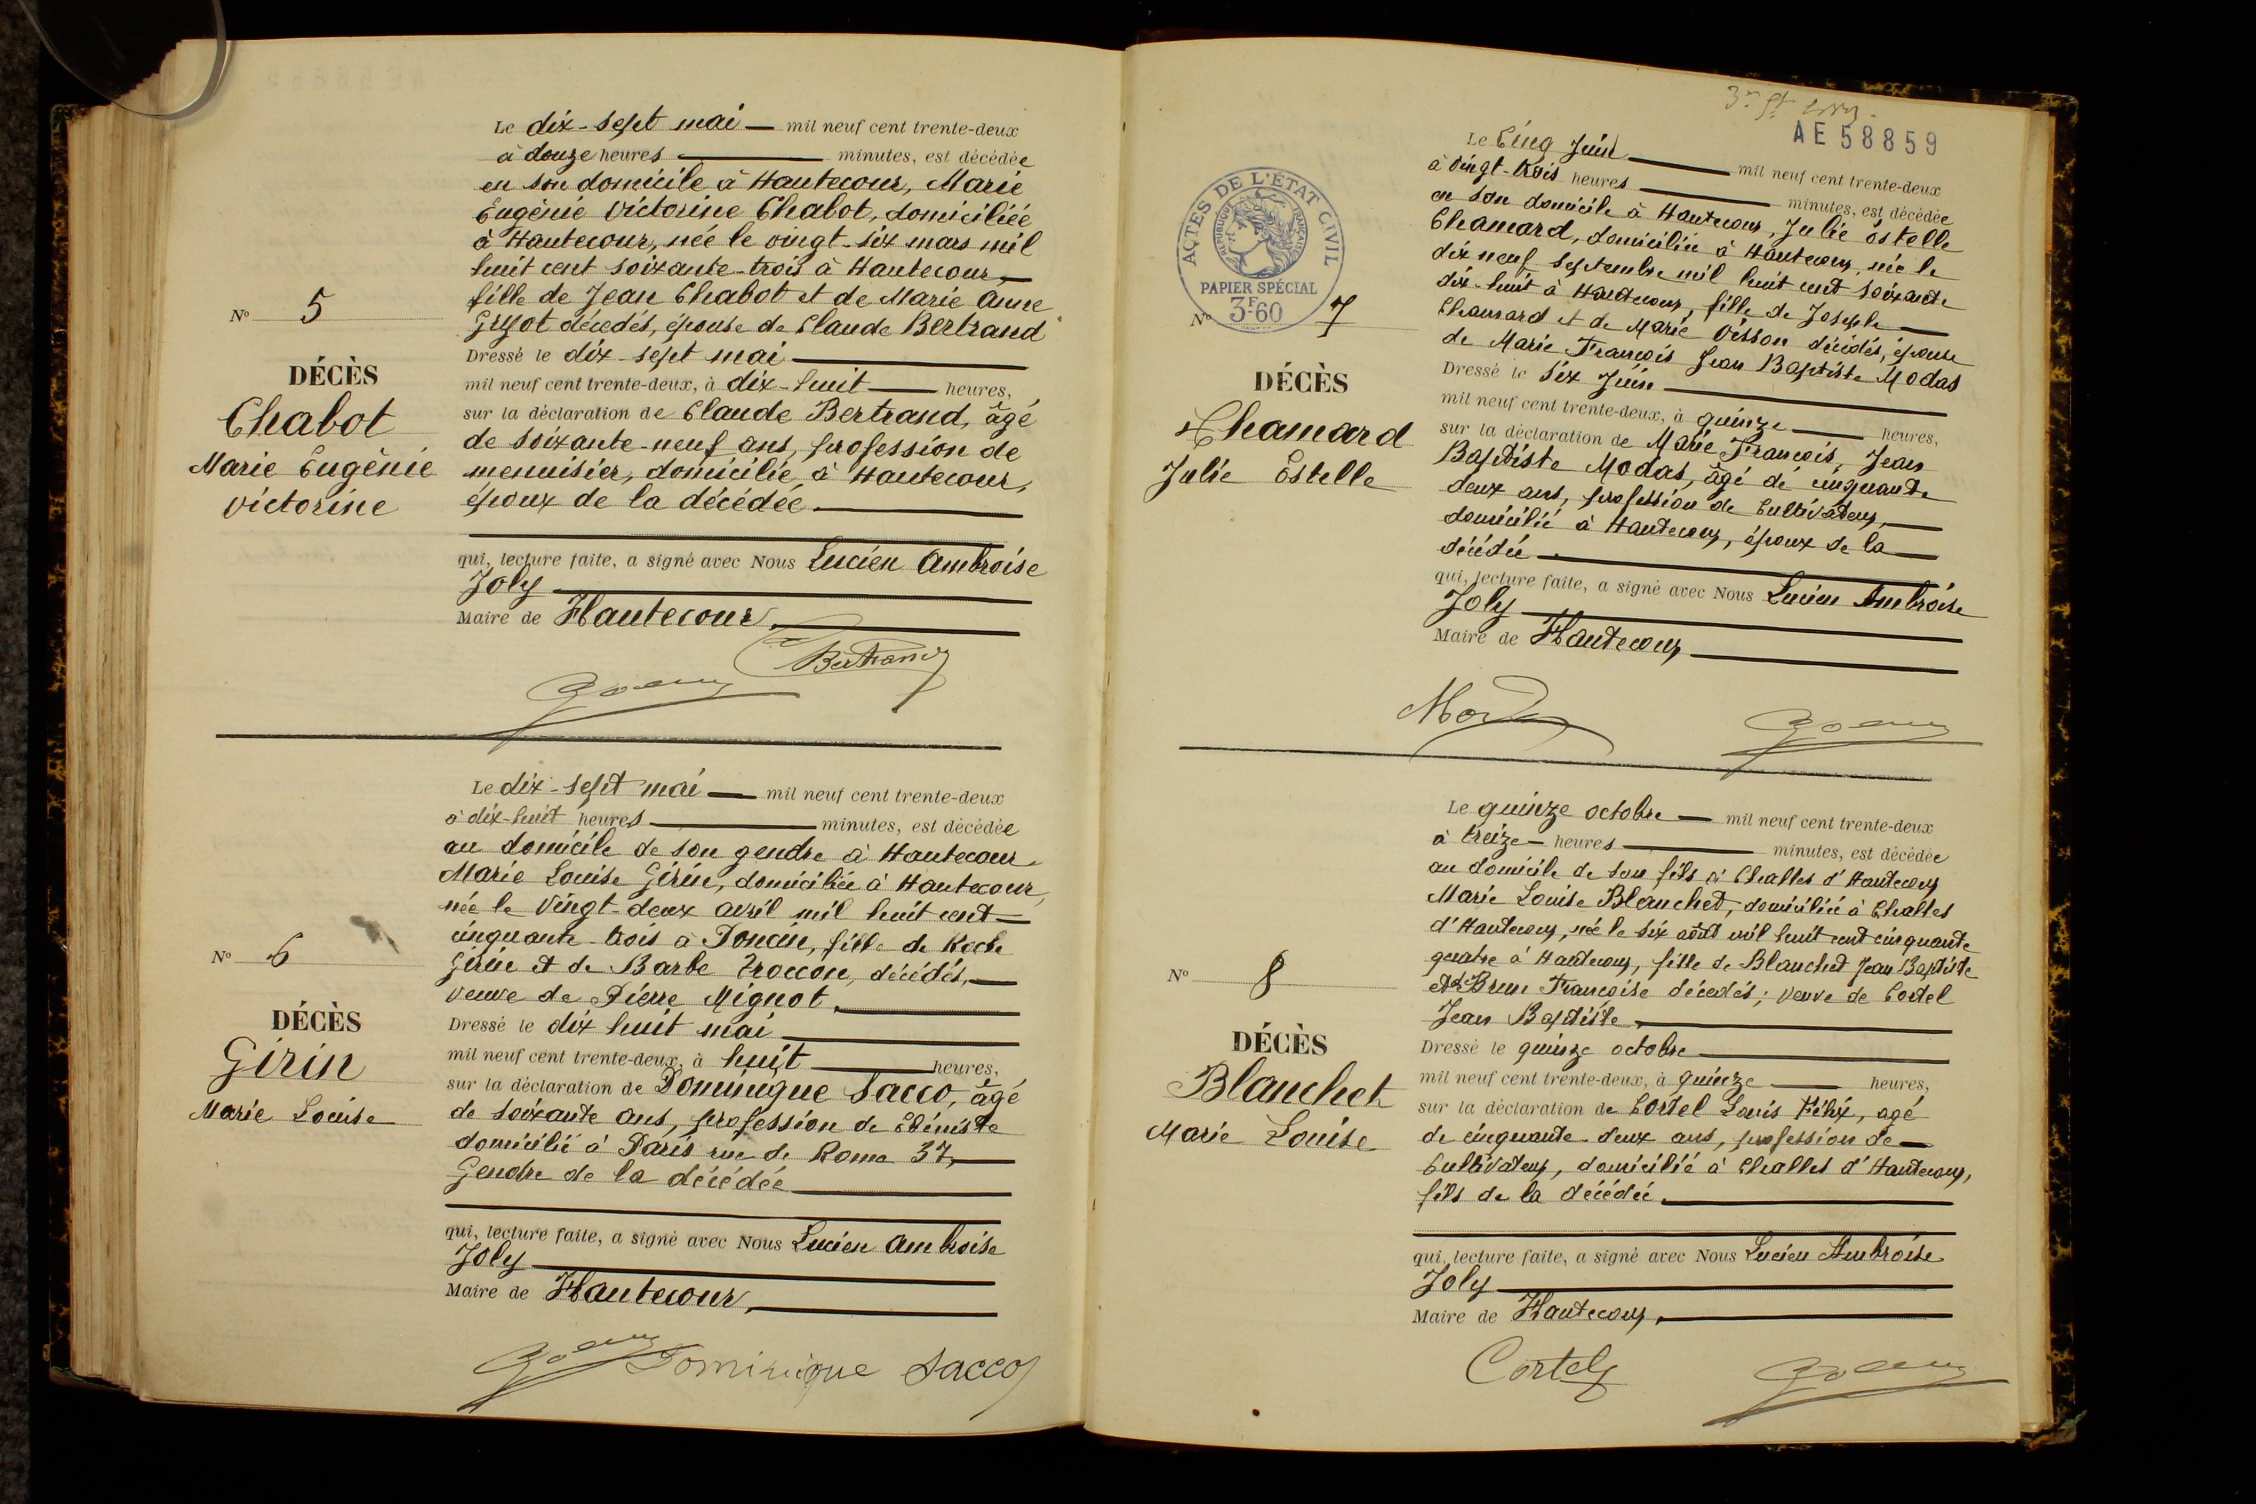 Le dix-sept mai — mil neuf cent trente-deux
à douze heures — minutes, est décédée
en son domicile à Hautecour, Marie
Eugénie Victorine Chabot, domiciliée
à Hautecour, née le vingt-six mars mil
huit cent soixante-trois à Hautecour,
fille de Jean Chabot et de Marie Anne
Guyot décédés, épouse de Claude Bertrand
Dressé le dix-sept mai
mil neuf cent trente-deux, à dix-huit — heures,
sur la déclaration de Claude Bertrand, âgé
de soixante-neuf ans, profession de
menuisier, domicilié à Hautecour,
époux de la décédée.
qui, lecture faite, a signé avec Nous Lucien Ambroise
Joly
Maire de Hautecour
Bertrand
N° 5
DÉCÈS
Chabot
Marie Eugénie
Victorine
Le dix-sept mai — mil neuf cent trente-deux
à dix-huit heures — minutes, est décédée
au domicile de son gendre à Hautecour
Marie Louise Girin, domiciliée à Hautecour,
née le vingt-deux avril mil huit cent
cinquante-trois à Poncin, fille de Roch
Girin et de Barbe Troccon, décédés,
veuve de Pierre Mignot.
Dressé le dix huit mai
mil neuf cent trente-deux, à huit — heures,
sur la déclaration de Dominique Sacco, âgé
de soixante ans, profession de Ebéniste
domicilié à Paris rue de Rome 37,
Gendre de la décédée
qui, lecture faite, a signé avec Nous Lucien Ambroise
Joly
Maire de Hautecour,
Dominique Sacco
N° 6
DÉCÈS
Girin
Marie Louise
AE 58859
ACTES DE L'ÉTAT CIVIL
RÉPUBLIQUE FRANÇAISE
PAPIER SPÉCIAL
3F.60
Le Cinq Juin — mil neuf cent trente-deux
à vingt-trois heures — minutes, est décédée
en son domicile à Hautecour, Julie Estelle
Chamard, domiciliée à Hautecour, née le
dix neuf septembre mil huit cent soixante
dix-huit à Hautecour, fille de Joseph
Chamard et de Marie Visson décédés, épouse
de Marie François Jean Baptiste Modas
Dressé le six Juin
mil neuf cent trente-deux, à quinze — heures,
sur la déclaration de Marie François, Jean
Baptiste Modas, âgé de cinquante
deux ans, profession de Cultivateur,
domicilié à Hautecour, époux de la
décédée
qui, lecture faite, a signé avec Nous Lucien Ambroise
Joly
Maire de Hautecour
N° 7
DÉCÈS
Chamard
Julie Estelle
Le quinze octobre — mil neuf cent trente-deux
à treize — heures — minutes, est décédée
au domicile de son fils à Challes d'Hautecour
Marie Louise Blanchet, domiciliée à Challes
d'Hautecour, née le six août mil huit cent cinquante
quatre à Hautecour, fille de Blanchet Jean Baptiste
et de Brun Françoise décédés; veuve de Cortel
Jean Baptiste,
Dressé le quinze octobre
mil neuf cent trente-deux, à quinze — heures,
sur la déclaration de Cortel Louis Félix, agé
de cinquante-deux ans, profession de
Cultivateur, domicilié à Challes d'Hautecour,
fils de la décédée.
qui, lecture faite, a signé avec Nous Lucien Ambroise
Joly
Maire de Hautecour,
Cortel
N° 8
DÉCÈS
Blanchet
Marie Louise